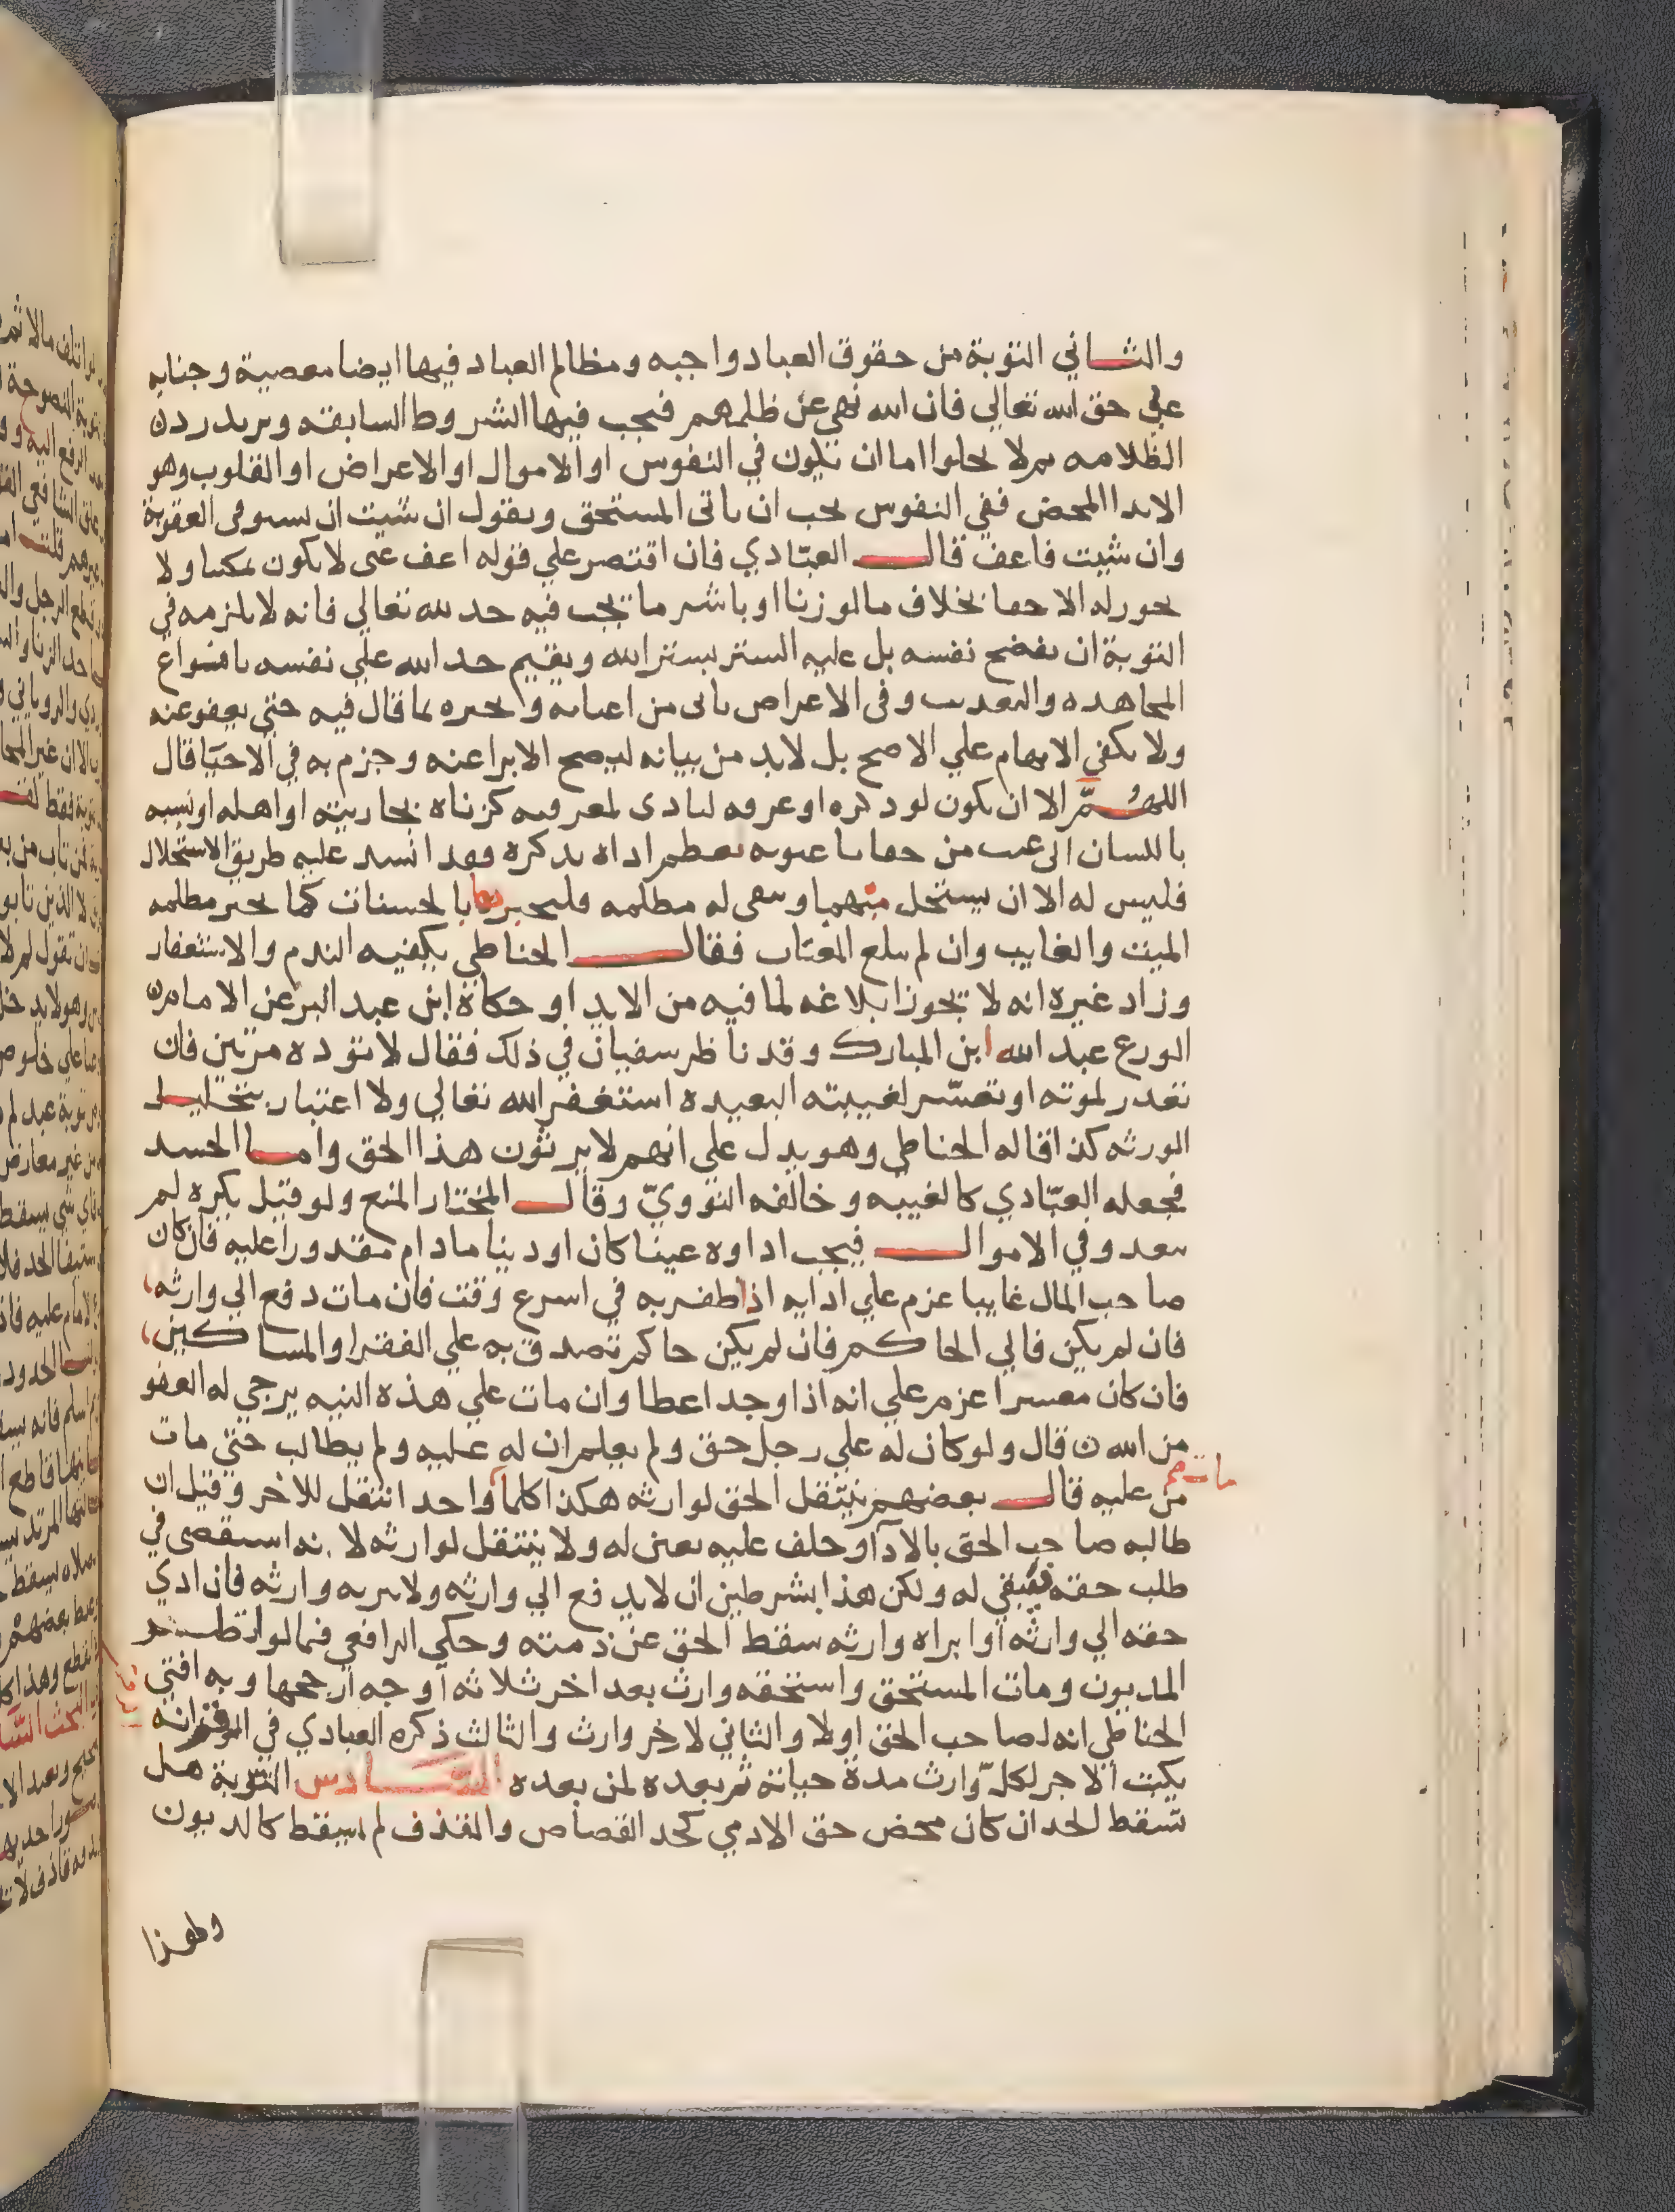 والثاني التوبة من حقوق العباد واجبه ومظالم العباد فيها ايضا معصية وجنايه
علي حق الله تعالي فان الله نهي عن ظلمهم فيجب فيها الشروط السابقه ويزيد رد
الظلامه ثم لا يخلوا اما ان تكون في النفوس او الاموال او الاعراض او القلوب وهو
الايذا المحض ففي النفوس يجب ان ياتي المستحق ويقول ان شيت ان تستوفي العقوبة
وان شيت فاعف قال العبّادي فان اقتصر علي قوله اعف عني لا يكون تمكينا ولا
يجوز له الاخفا بخلاف ما لو زنا او باشر ما يجب فيه حد لله تعالي فانه لا يلزمه في
التوبة ان يفضح نفسه بل عليه الستر بستر الله ويقيم حد الله علي نفسه بانواع
المجاهده والتعذيب وفي الاعراض ياتي من اغتابه ويخبره بما قال فيه حتي يعفو عنه
ولا يكفي الابهام علي الاصح بل لابد من بيانه ليصح الابرا عنه وجزم به في الاحيا قال
اللهمّ الا ان يكون لو ذكره او عرفه لتاذي لمعرفته كزناه بجاريته او اهله او نسبه
باللسان الي عيب من خفايا عيوبه يعظم اذاه بذكره فقد انسد عليه طريق الاستحلال
فليس له الا ان يستحل منهما وتبقي له مظلمه فليجبرها بالحسنات كما يجبر مظلمه
الميت والغايب وان لم يبلغ المغتاب فقال الحناطي يكفيه الندم والاستغفار
وزاد غيره انه لا يجوز ابلاغه لما فيه من الايذا وحكاه ابن عبد البر عن الامام
الورع عبد الله ابن المبارك وقد ناظر سفيان في ذلك فقال لا توذه مرتين فان
تعذر لموته او تعسّر لغيبته البعيده استغفر الله تعالي ولا اعتبار بتحليل
الورثه كذا قاله الحناطي وهو يدل علي انهم لا يرثون هذا الحق واما الحسد
فجعله العبّادي كالغيبه وخالفه النوويّ وقال المختار المنع ولو قيل يكره لم
يبعد وفي الاموال فيجب اداوه عينا كان او دينا مادام مقدورا عليه فان كان
صاحب المال غايبا عزم علي ادايه اذا ظفر به في اسرع وقت فان مات دفع الي وارثه
فان لم يكن فالي الحاكم فان لم يكن حاكم تصدق به علي الفقرا والمساكين
فان كان معسرا عزم علي انه اذا وجد اعطا وان مات علي هذه النيه يرجي له العفو
من الله قال ولو كان له علي رجل حق ولم يعلم ان له عليه ولم يطالب حتي مات
مات صح
من عليه قال بعضهم ينتقل الحق لوارثه هكذا كلما واحد انتقل للاخر وقيل ان
طالبه صاحب الحق بالادآ وحلف عليه يعين له ولا ينتقل لوارثه لانه استقصي في
طلب حقه فيبقي له ولكن هذا بشرطين ان لا يدفع الي وارثه ولا يبريه وارثه فان ادي
حقه الي وارثه او ابراه وارثه سقط الحق عن ذمته وحكي الرافعي فيما لو
المديون ومات المستحق واستحقه وارث بعد اخر ثلاثه اوجه ارجحها وبه افتي
الحناطي انه لصاحب الحق اولا والثاني لاخر وارث والثالث ذكره العبادي في الرقم انه
يكتب الاجر لكل وارث مدة حياته ثم بعده لمن بعده السادس التوبة هل
تسقط الحد ان كان محض حق الادمي كحد القصاص والقذف لم يسقط كالديون
وهذا